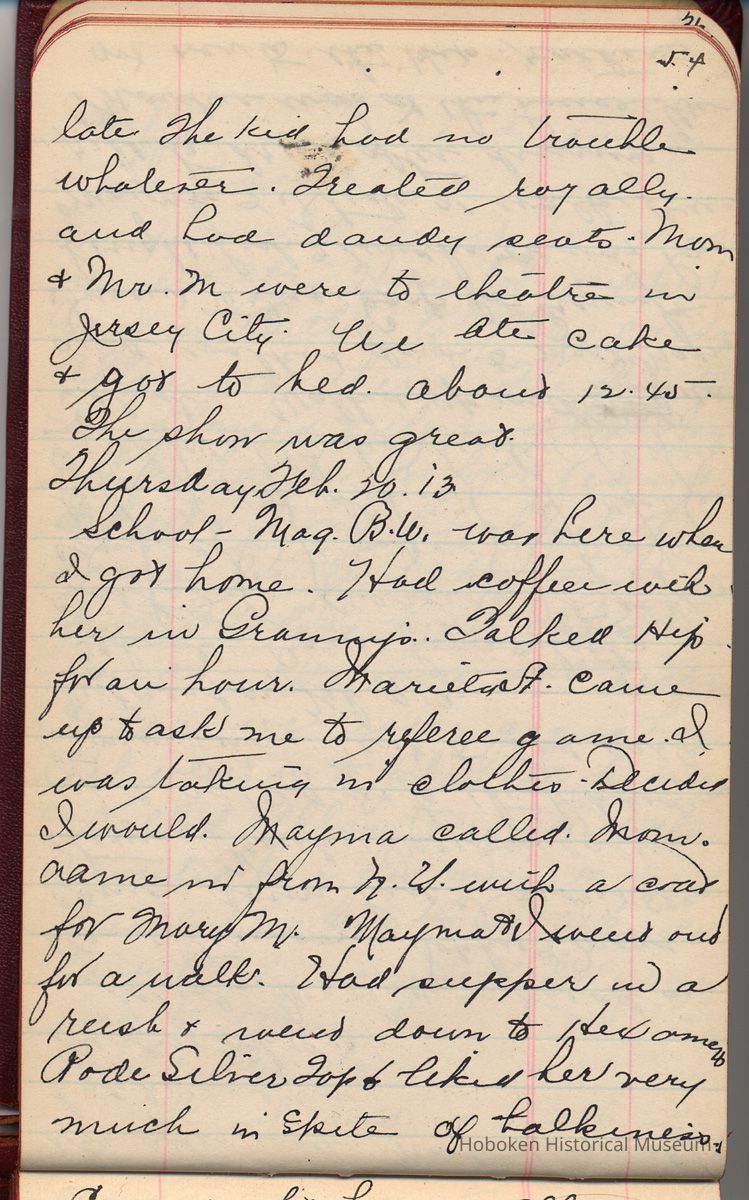 54
late. The kid had no trouble
whatever. Treated royally.
and had dandy seats. Mom
& Mr. M were to theatre in
Jersey City. We ate cake
& got to bed. about 12.45.
The show was great.
Thursday Feb. 20. 13
School - Mag. B.W. was here when
I got home. Had coffee with
her in Granny's. Talked Hip
for an hour. Marietta F. came
up to ask me to referee game. I
was taking in clothes - Decided
I would. Mayma called. Mom.
came in from N.Y. with a coat
for Mary M. Mayma & I went out
for a walk. Had supper in a
rush & went down to
Rode Silver Top & liked her very
much in spite of balkiness.
Hoboken Historical Museum